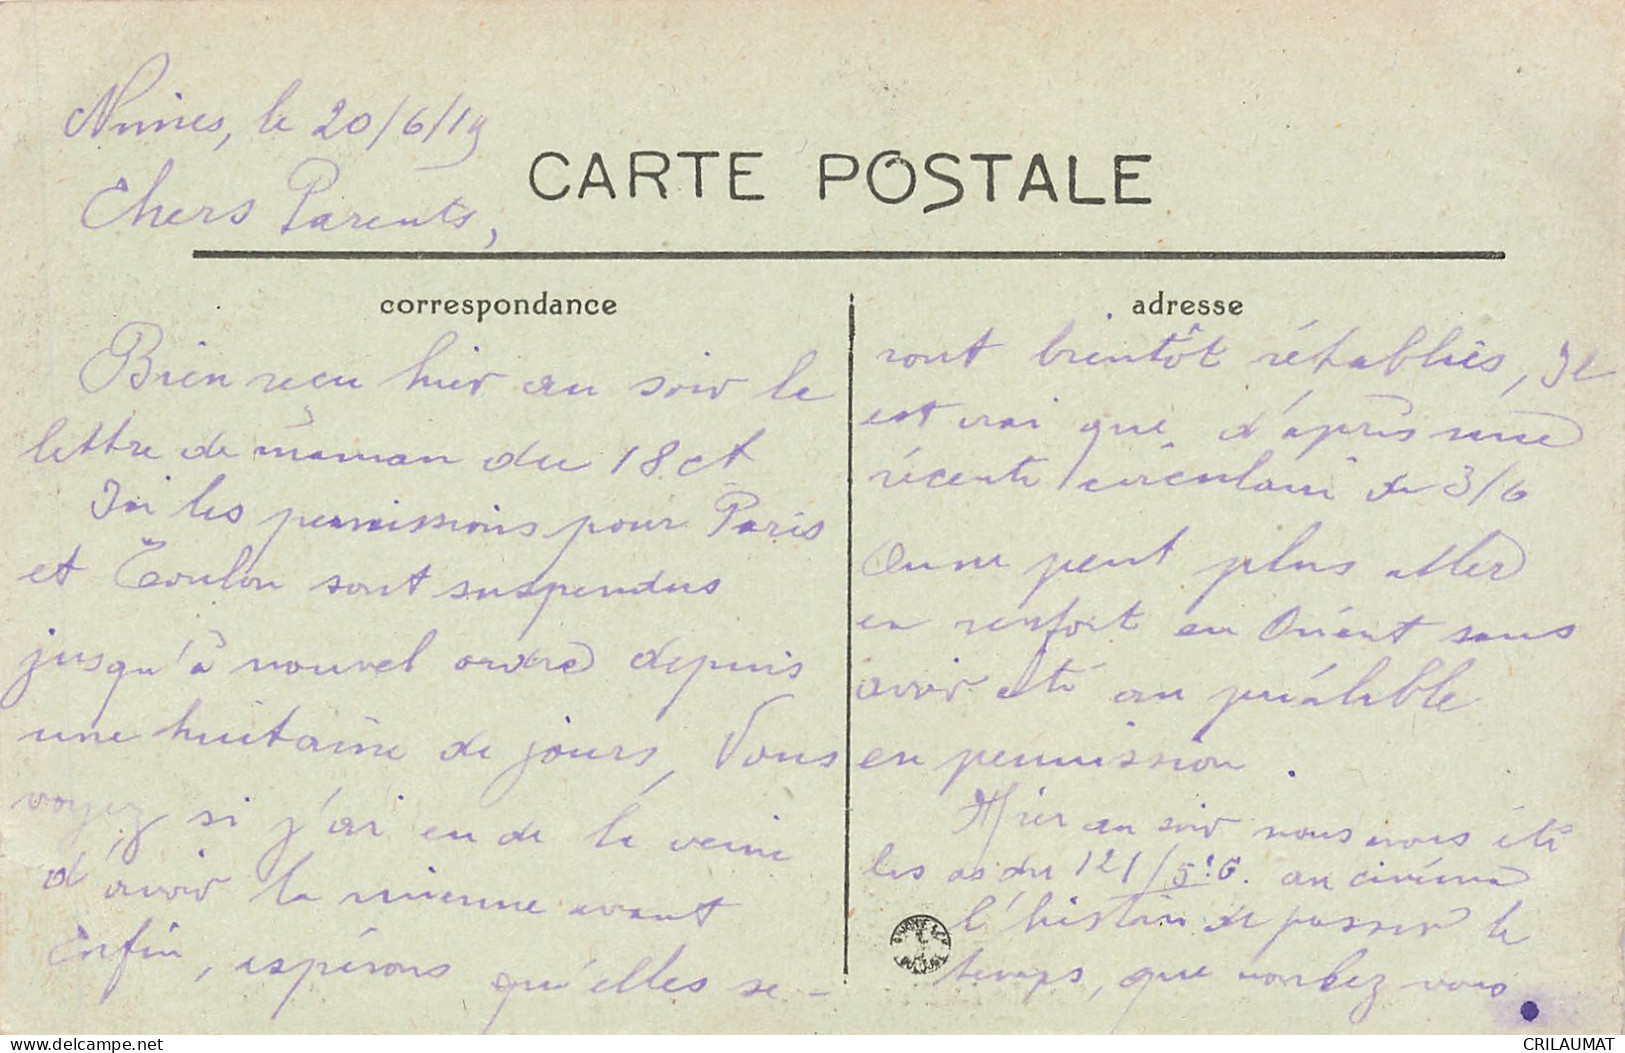 Nimes, le 20/6/19
Chers Parents,
CARTE POSTALE
correspondance
Bien reçu hier au soir la
lettre de maman du 18 ct
Ici les permissions pour Paris
et Toulon sont suspendus
jusqu'à nouvel ordre depuis
une huitaine de jours, Vous
voyez si j'ai eu de la veine
d'avoir la mienne avant
Enfin, espérons qu'elles se-
adresse
ront bientôt rétablies, Il
est vrai que d'après une
récente circulaire du 3/6
On ne peut plus aller
en renfort en Orient sans
avoir été au préalable
en permission.
Hier au soir nous avons été
les as du 121/5: G. au cinéma
l'histoire de passer le
temps, que voulez vous
www.delcampe.net
CRILAUMAT